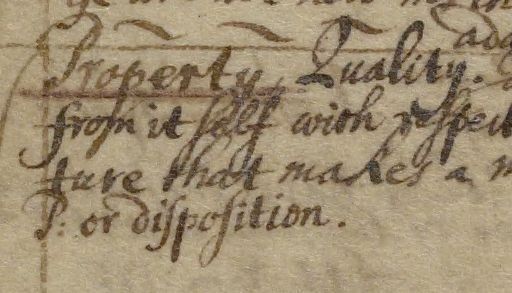 Property, Quality.
from it self with respect
ture that makes a
P: or disposition.